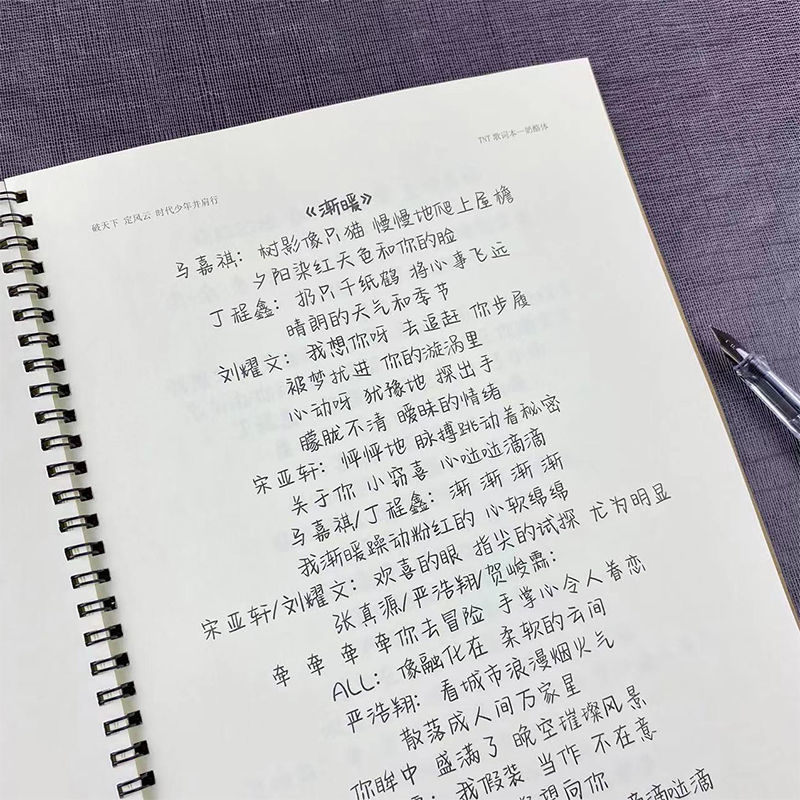 TNT 歌词本—奶酪体
破天下 定风云 时代少年并肩行
《渐暖》
马嘉祺：树影像只猫 慢慢地爬上屋檐
夕阳染红天色和你的脸
丁程鑫：扔只千纸鹤 将心事飞远
晴朗的天气和季节
刘耀文：我想你呀 去追赶 你步履
被梦扰进 你的漩涡里
心动呀 犹豫地 探出手
朦胧不清 暧昧的情绪
宋亚轩：怦怦地 脉搏跳动着秘密
关于你 小窃喜 心哒哒滴滴
马嘉祺/丁程鑫：渐 渐 渐 渐
我渐暖躁动粉红的 心软绵绵
宋亚轩/刘耀文：欢喜的眼 指尖的试探 尤为明显
张真源/严浩翔/贺峻霖：
牵 牵 牵 牵你去冒险 手掌心令人眷恋
ALL：像融化在 柔软的云间
严浩翔：看城市浪漫烟火气
散落成人间万家星
你眸中 盛满了 晚空璀璨风景
：我假装 当作 不在意
望向你
滴滴哒滴